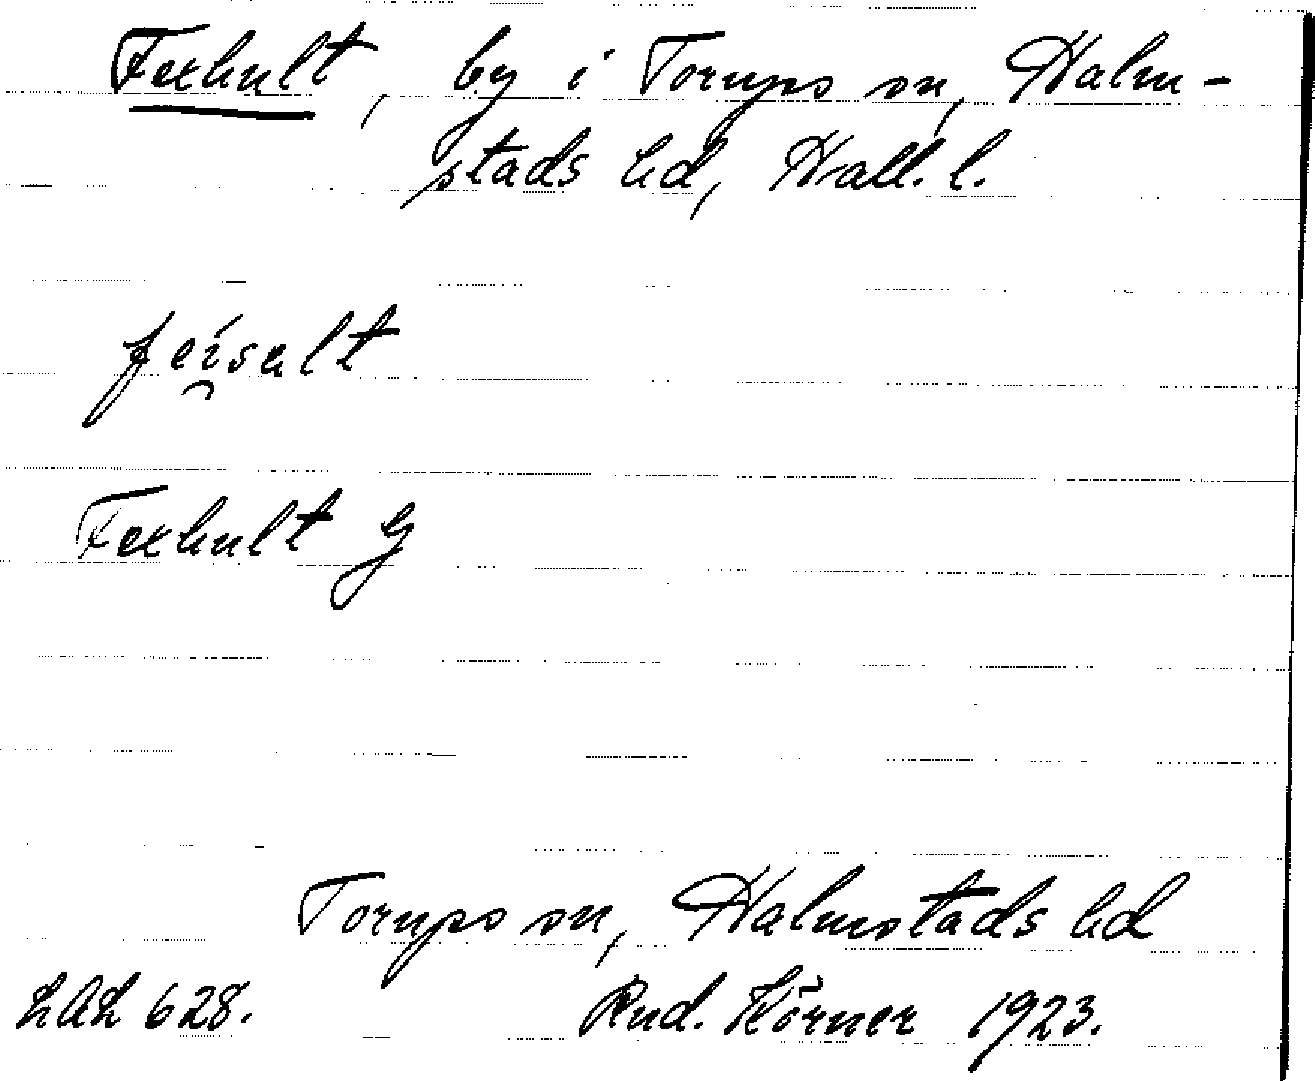 Fexhult, by i Torups sn, Halm-
stads hd, Hall. l.
feisalt
Fexhult G
Torups sn, Halmstads hd
LAL 628. Rud. Körner 1923.